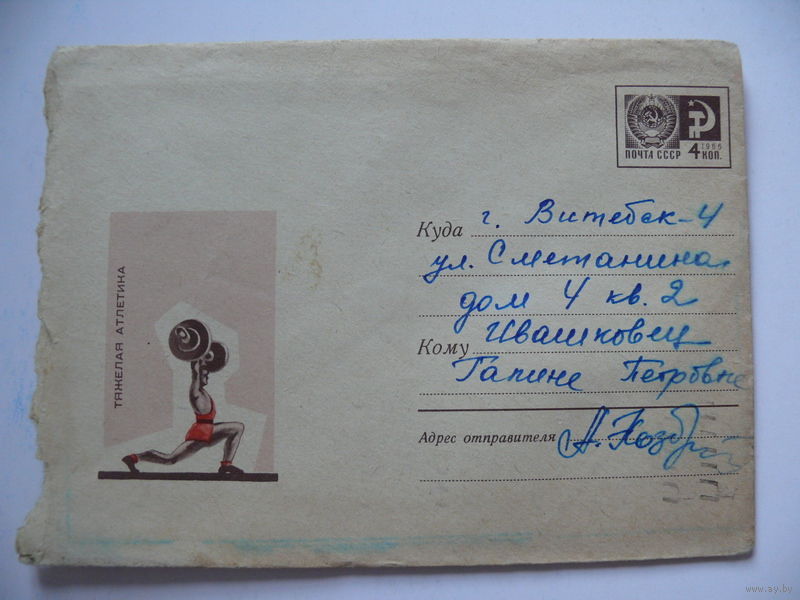 1966
ПОЧТА СССР 4 КОП.
ТЯЖЕЛАЯ АТЛЕТИКА
Куда г. Витебск-4
ул. Сметанина
дом 4 кв. 2
Кому Ивашковец
Галине Петровне
Адрес отправителя А.
www.ay.by